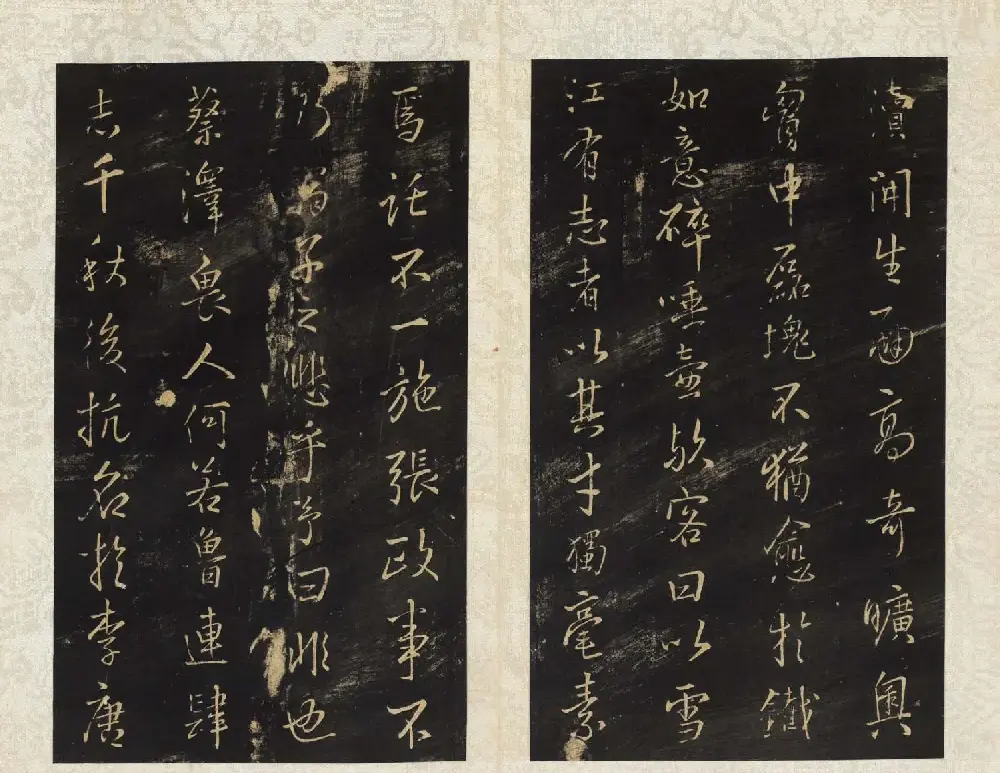 開生面高奇曠奧
胷中磊塊不猶愈於鐵
如意碎唾壺欤客曰以雪
江有志者以其才獨毫素
焉託不一施張政事不
乃為子之悲乎予曰非也
蔡澤畏人何若魯連肆
志千秋後抗名於李唐